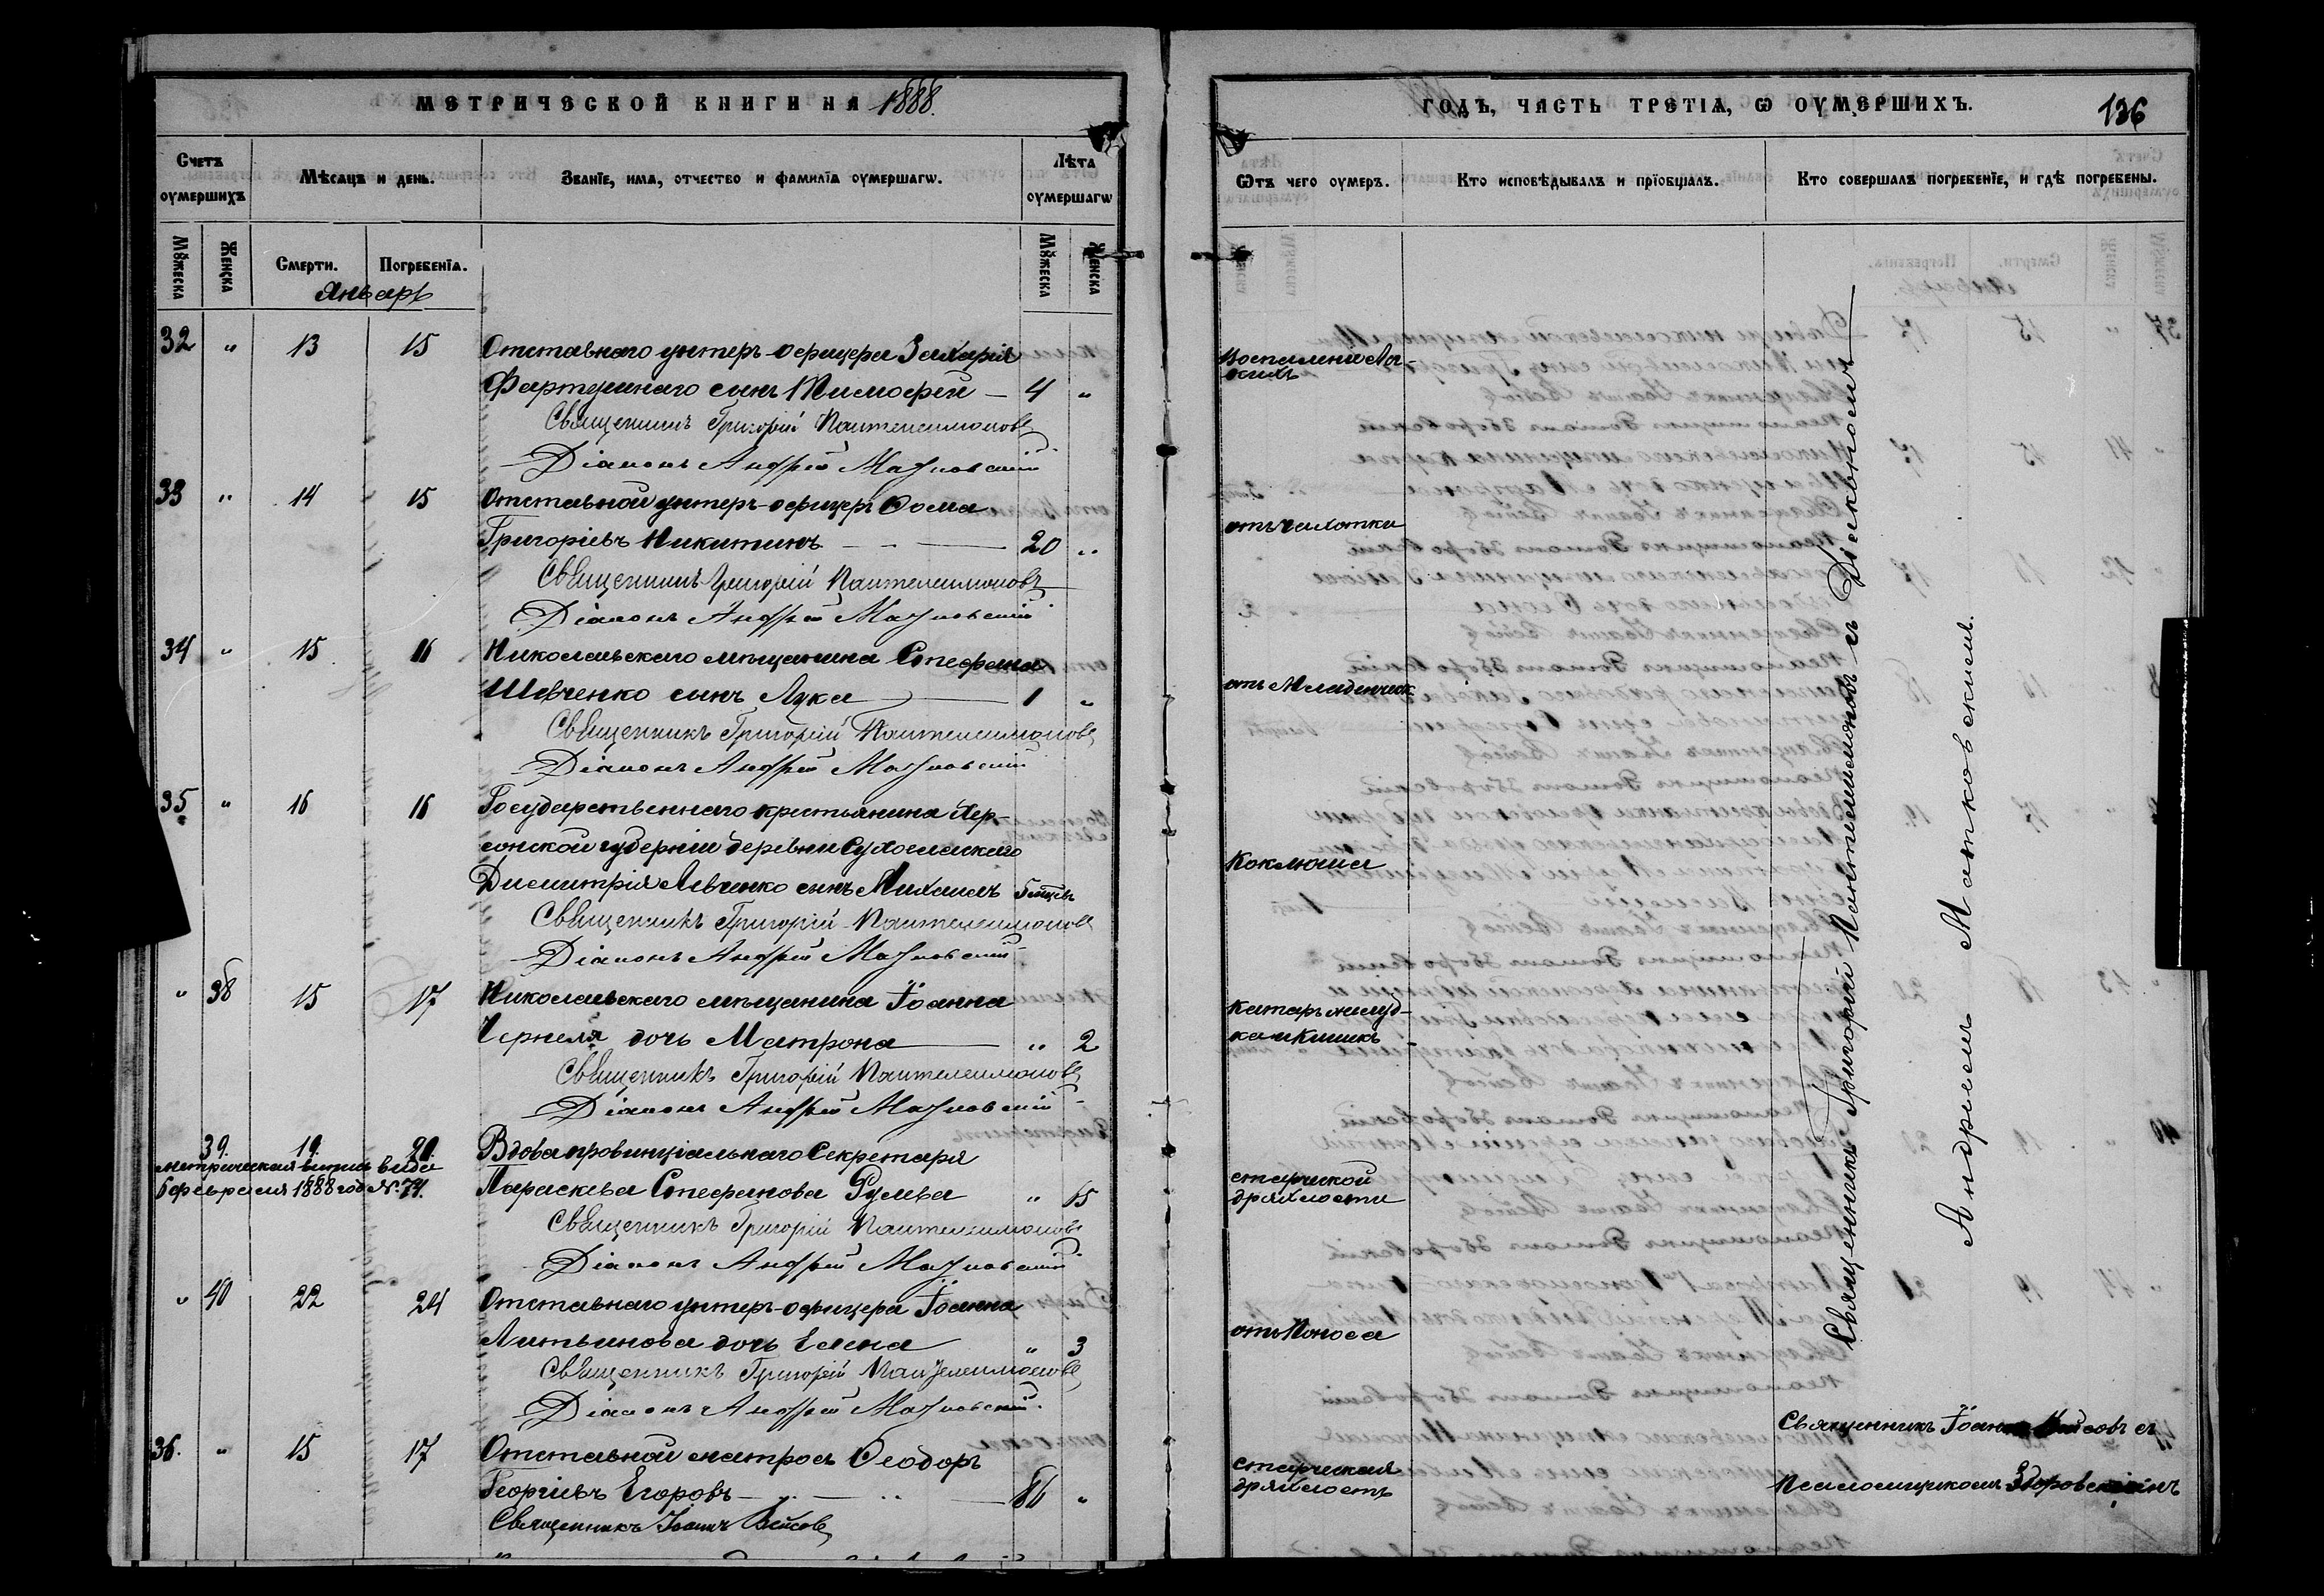 МЕТРИЧЕСКОЙ КНИГИ НА 1888.
Счетъ оумершихъ
Мѣсяцъ и день.
Званїе, имя, отчество и фамилїя оумершагѡ.
Лѣта оумершагѡ
Мꙋжеска
Женска
Смерти.
Погребенїя.
Мꙋжеска
Женска
Январь
32 " 13 15 Отставнаго унтеръ-офицера Захарія
сынъ Тимофей — 4 "
Священникъ Григорій Пантелеимоновъ
Діаконъ Андрей Матковскій
33 " 14 15 Отставной унтеръ-офицеръ Фома
Григоріевъ Никитинъ — 20 "
Священникъ Григорій Пантелеимоновъ
Діаконъ Андрей Матковскій
34 " 15 16 Николаевскаго мѣщанина Стефана
Шевченко сынъ Лука — 1 "
Священникъ Григорій Пантелеимоновъ
Діаконъ Андрей Матковскій
35 " 16 16 Государственнаго крестьянина Хер-
сонской губерніи деревни
Димитрія Левченко сынъ Михаилъ
Священникъ Григорій Пантелеимоновъ
Діаконъ Андрей Матковскій
" 38 15 17 Николаевскаго мѣщанина Іоанна
дочь Матрона — " 2
Священникъ Григорій Пантелеимоновъ
Діаконъ Андрей Матковскій
39. 19. 20. Вдова провинціальнаго Секретаря
метрическая выпись выдана
Параскева Стефанова " 65
6 февраля 1888 год. № 74.
Священникъ Григорій Пантелеимоновъ
Діаконъ Андрей Матковскій
" 40 22 24 Отставнаго унтеръ-офицера Іоанна
Литвинова дочь Елена " 3
Священникъ Григорій Пантелеимоновъ
Діаконъ Андрей Матковскій.
36. " 15 17 Отставной матросъ Ѳеодоръ
Георгіевъ Егоровъ — 86 "
Священникъ Іоаннъ Вейсовъ
ГОДЪ, ЧАСТЬ ТРЕТІЯ, Ѡ ОУМЕРШИХЪ.
136
Ѿтъ чего оумеръ.
Кто исповѣдывалъ и прїобщалъ.
Кто совершалъ погребенїе, и гдѣ погребены.
отъ чахотки
отъ младенческ.
Коклюша
катаръ желуд-
ка и кишекъ
старческой
дряхлости
отъ Поноса
старческая
дряхлость
Священникъ Григорій Пантелеимоновъ съ Діакономъ
Андреемъ Матковскимъ.
Священникъ Іоаннъ Вейсовъ съ
Псаломщикомъ